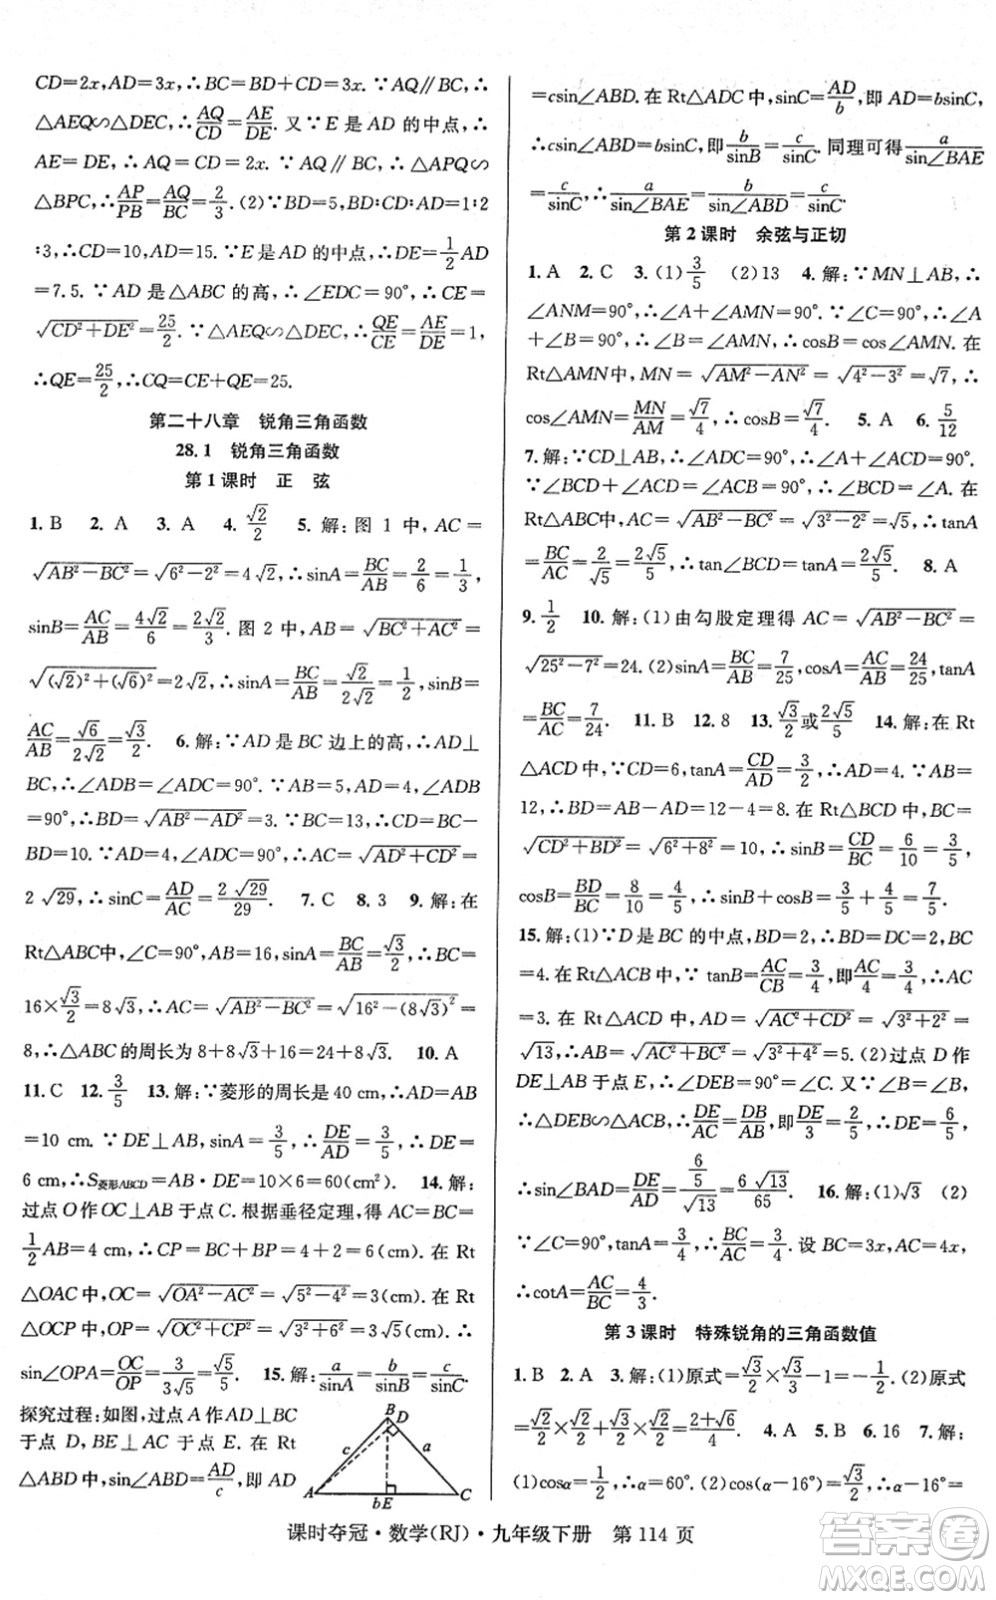 CD=2x,AD=3x,∴BC=BD+CD=3x.∵AQ∥BC,∴
△AEQ∽△DEC,∴AQ/CD=AE/DE.又∵E是AD的中点,∴
AE=DE,∴AQ=CD=2x.∵AQ∥BC,∴△APQ∽
△BPC,∴AP/PB=AQ/BC=2/3.(2)∵BD:CD:AD=1:2
:3,∴CD=10,AD=15.∵E是AD的中点,∴DE=1/2AD
=7.5.∵AD是△ABC的高,∴∠EDC=90°,∴CE=
√(CD²+DE²)=25/2.∵△AEQ∽△DEC,∴QE/CE=AE/DE=1,
∴QE=25/2,∴CQ=CE+QE=25.
第二十八章 锐角三角函数
28.1 锐角三角函数
第1课时 正 弦
1.B 2.A 3.A 4.√2/2 5.解:图1中,AC=
√(AB²-BC²)=√(6²-2²)=4√2,∴sinA=BC/AB=2/6=1/3,
sinB=AC/AB=4√2/6=2√2/3.图2中,AB=√(BC²+AC²)=
√((√2)²+(√6)²)=2√2,∴sinA=BC/AB=√2/2√2=1/2,sinB=
AC/AB=√6/2√2=√3/2. 6.解:∵AD是BC边上的高,∴AD⊥
BC,∴∠ADB=∠ADC=90°.∵AB=5,AD=4,∠ADB
=90°,∴BD=√(AB²-AD²)=3.∵BC=13,∴CD=BC-
BD=10.∵∠ADC=90°,∴AC=√(AD²+CD²)=
2√29,∴sinC=AD/AC=2√29/29. 7.C 8.3 9.解:在
Rt△ABC中,∠C=90°,AB=16,sinA=BC/AB=√3/2,∴BC=
16×√3/2=8√3,∴AC=√(AB²-BC²)=√(16²-(8√3)²)=
8,∴△ABC的周长为8+8√3+16=24+8√3. 10.A
11.C 12.3/5 13.解:∵菱形的周长是40 cm,∴AD=AB
=10 cm.∵DE⊥AB,sinA=3/5,∴DE/AD=3/5,∴DE=
6 cm,∴S菱形ABCD=AB·DE=10×6=60(cm²) 14.解:
过点O作OC⊥AB于点C.根据垂径定理,得AC=BC=
1/2AB=4 cm,∴CP=BC+BP=4+2=6(cm).在Rt
△OAC中,OC=√(OA²-AC²)=√(5²-4²)=3(cm).在Rt
△OCP中,OP=√(OC²+CP²)=√(3²+6²)=3√5(cm),
sin∠OPA=OC/OP=3/3√5=√5/5. 15.解:a/sinA=b/sinB=c/sinC.
探究过程:如图,过点A作AD⊥BC
于点D,BE⊥AC于点E.在Rt
△ABD中,sin∠ABD=AD/c,即AD
B
D
c
a
A
bE
C
=csin∠ABD.在Rt△ADC中,sinC=AD/b,即AD=bsinC,
∴csin∠ABD=bsinC,即b/sinB=c/sinC.同理可得a/sin∠BAE
=c/sinC,∴a/sin∠BAE=b/sin∠ABD=c/sinC.
第2课时 余弦与正切
1.A 2.C 3.(1)3/5 (2)13 4.解:∵MN⊥AB,∴
∠ANM=90°,∴∠A+∠AMN=90°.∵∠C=90°,∴∠A
+∠B=90°,∴∠B=∠AMN,∴cosB=cos∠AMN.在
Rt△AMN中,MN=√(AM²-AN²)=√(4²-3²)=√7,∴
cos∠AMN=MN/AM=√7/4,∴cosB=√7/4. 5.A 6.5/12
7.解:∵CD⊥AB,∴∠ADC=90°,∴∠A+∠ACD=90°.
∵∠BCD+∠ACD=∠ACB=90°,∴∠BCD=∠A.在
Rt△ABC中,AC=√(AB²-BC²)=√(3²-2²)=√5,∴tanA
=BC/AC=2/√5=2√5/5,∴tan∠BCD=tanA=2√5/5. 8.A
9.1/2 10.解:(1)由勾股定理得AC=√(AB²-BC²)=
√(25²-7²)=24.(2)sinA=BC/AB=7/25,cosA=AC/AB=24/25,tanA
=BC/AC=7/24. 11.B 12.8 13.√3/2或2√5/5 14.解:在Rt
△ACD中,∵CD=6,tanA=CD/AD=3/2,∴AD=4.∵AB=
12,∴BD=AB-AD=12-4=8.在Rt△BCD中,BC=
√(CD²+BD²)=√(6²+8²)=10,∴sinB=CD/BC=6/10=3/5,
cosB=BD/BC=8/10=4/5,∴sinB+cosB=3/5+4/5=7/5.
15.解:(1)∵D是BC的中点,BD=2,∴BD=DC=2,BC
=4.在Rt△ACB中,∵tanB=AC/CB=3/4,即AC/4=3/4,∴AC
=3.在Rt△ACD中,AD=√(AC²+CD²)=√(3²+2²)=
√13,∴AB=√(AC²+BC²)=√(3²+4²)=5.(2)过点D作
DE⊥AB于点E,∴∠DEB=90°=∠C.又∵∠B=∠B,
∴△DEB∽△ACB,∴DE/AC=DB/AB,即DE/3=2/5,∴DE=6/5,
∴sin∠BAD=DE/AD=(6/5)/√13=6√13/65. 16.解:(1)√3 (2)
∵∠C=90°,tanA=3/4,∴BC/AC=3/4.设BC=3x,AC=4x,
∴cotA=AC/BC=4/3.
第3课时 特殊锐角的三角函数值
1.B 2.A 3.解:(1)原式=√3/2×√3/3-1=-1/2.(2)原式
=√2/2×√2/2+√3/2×√2/2=(2+√6)/4. 4.A 5.B 6.16 7.解:
(1)cosα=1/2,∴α=60°.(2)cos(α-16°)=√3/2,∴α-16°=
课时夺冠·数学(RJ)·九年级下册 第114页
答案圈
MXQE.COM